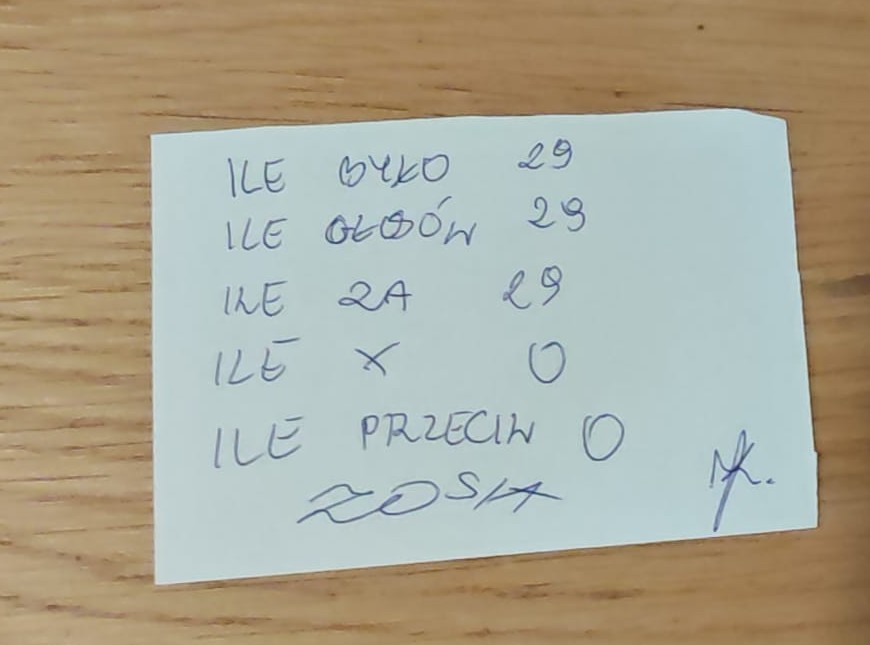 ILE BYŁO 29
ILE GŁOSÓW 29
ILE ZA 29
ILE X 0
ILE PRZECIW 0
ZOSIA